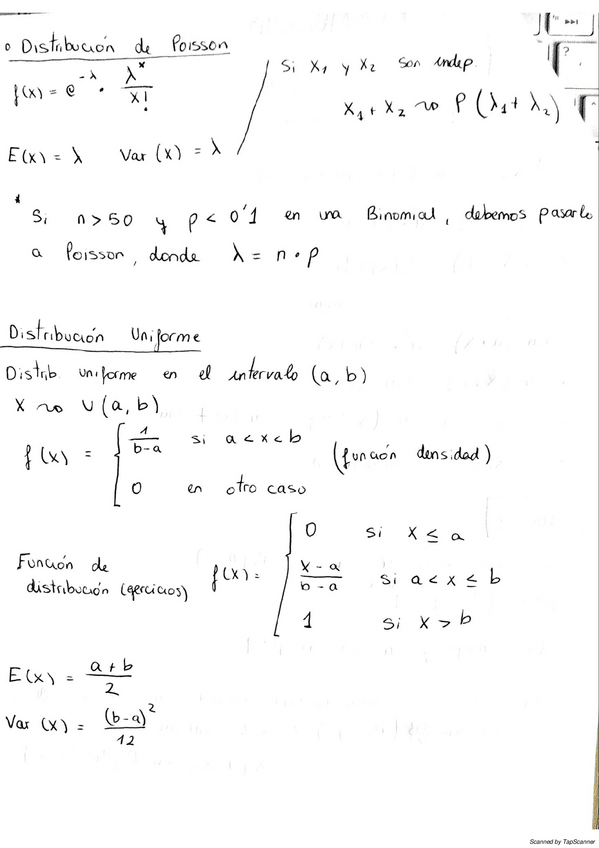 o Distribución de Poisson
f(x) = e^-λ · λ^x / x!
E(x) = λ Var (x) = λ
Si X1 y X2 son indep.
X1 + X2 ~ P (λ1 + λ2)
* Si n > 50 y p < 0'1 en una Binomial, debemos pasarlo
a Poisson, donde λ = n · p
Distribución Uniforme
Distrib. uniforme en el intervalo (a, b)
X ~ U (a, b)
f (x) = { 1 / b-a si a < x < b
0 en otro caso
(función densidad)
Función de
distribución (ejercicios)
f(x) = { 0 si x ≤ a
x - a / b - a si a < x ≤ b
1 si x > b
E(x) = a + b / 2
Var (x) = (b-a)^2 / 12
Scanned by TapScanner